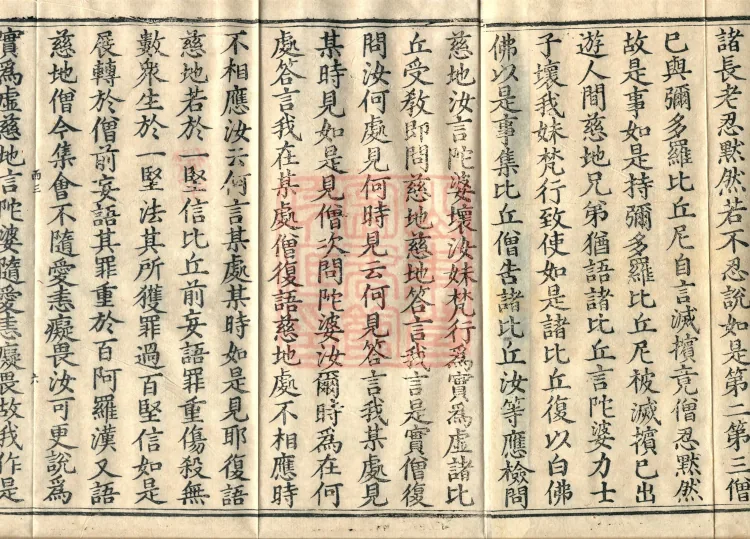 諸長老忍默然若不忍說如是第二第三僧
已與彌多羅比丘尼自言滅擯竟僧忍默然
故是事如是持彌多羅比丘尼被滅擯已出
遊人間慈地兄弟猶語諸比丘言陀婆力士
子壞我妹梵行致使如是諸比丘復以白佛
佛以是事集比丘僧告諸比丘汝等應檢問
慈地汝言陀婆壞汝妹梵行為實為虛諸比
丘受教即問慈地慈地答言我言是實僧復
問汝何處見何時見云何見答言我某處見
某時見如是見僧次問陀婆汝爾時為在何
處答言我在某處僧復語慈地處不相應時
不相應汝云何言某處某時如是見耶復語
慈地若於一堅信比丘前妄語罪重傷殺無
數衆生於一堅法其所獲罪過百堅信如是
展轉於僧前妄語其罪重於百阿羅漢又語
雨三 六
慈地僧今集會不隨愛恚癡畏汝可更說為
實為虛慈地言陀婆隨愛恚癡畏故我作是